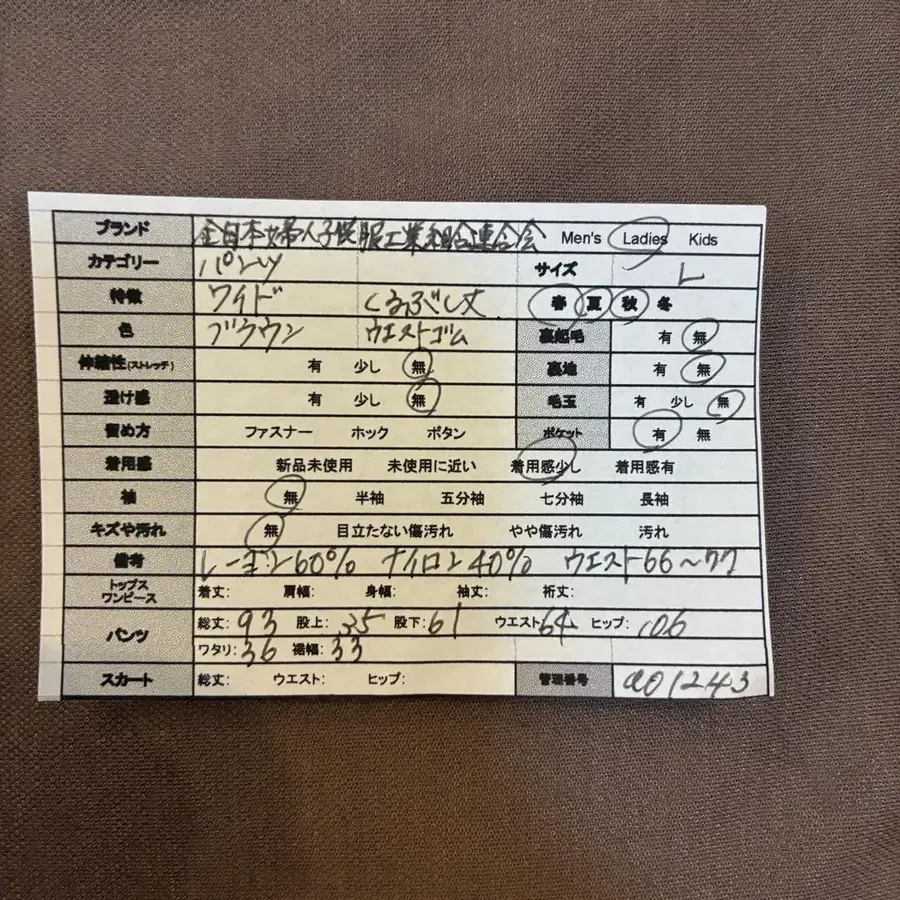 ブランド 全日本婦人子供服工業組合連合会 Men's Ladies Kids
カテゴリー パンツ サイズ L
特徴 ワイド くるぶし丈 春 夏 秋 冬
色 ブラウン ウエストゴム 裏起毛 有 無
伸縮性(ストレッチ) 有 少し 無 裏地 有 無
透け感 有 少し 無 毛玉 有 少し 無
留め方 ファスナー ホック ボタン ポケット 有 無
着用感 新品未使用 未使用に近い 着用感少し 着用感有
袖 無 半袖 五分袖 七分袖 長袖
キズや汚れ 無 目立たない傷汚れ やや傷汚れ 汚れ
備考 レーヨン60% ナイロン40% ウエスト66~77
トップス ワンピース 着丈: 肩幅: 身幅: 袖丈: 裄丈:
パンツ 総丈:93 股上:35 股下:61 ウエスト64 ヒップ:106
ワタリ:36 裾幅:33
スカート 総丈: ウエスト: ヒップ: 管理番号 a01243